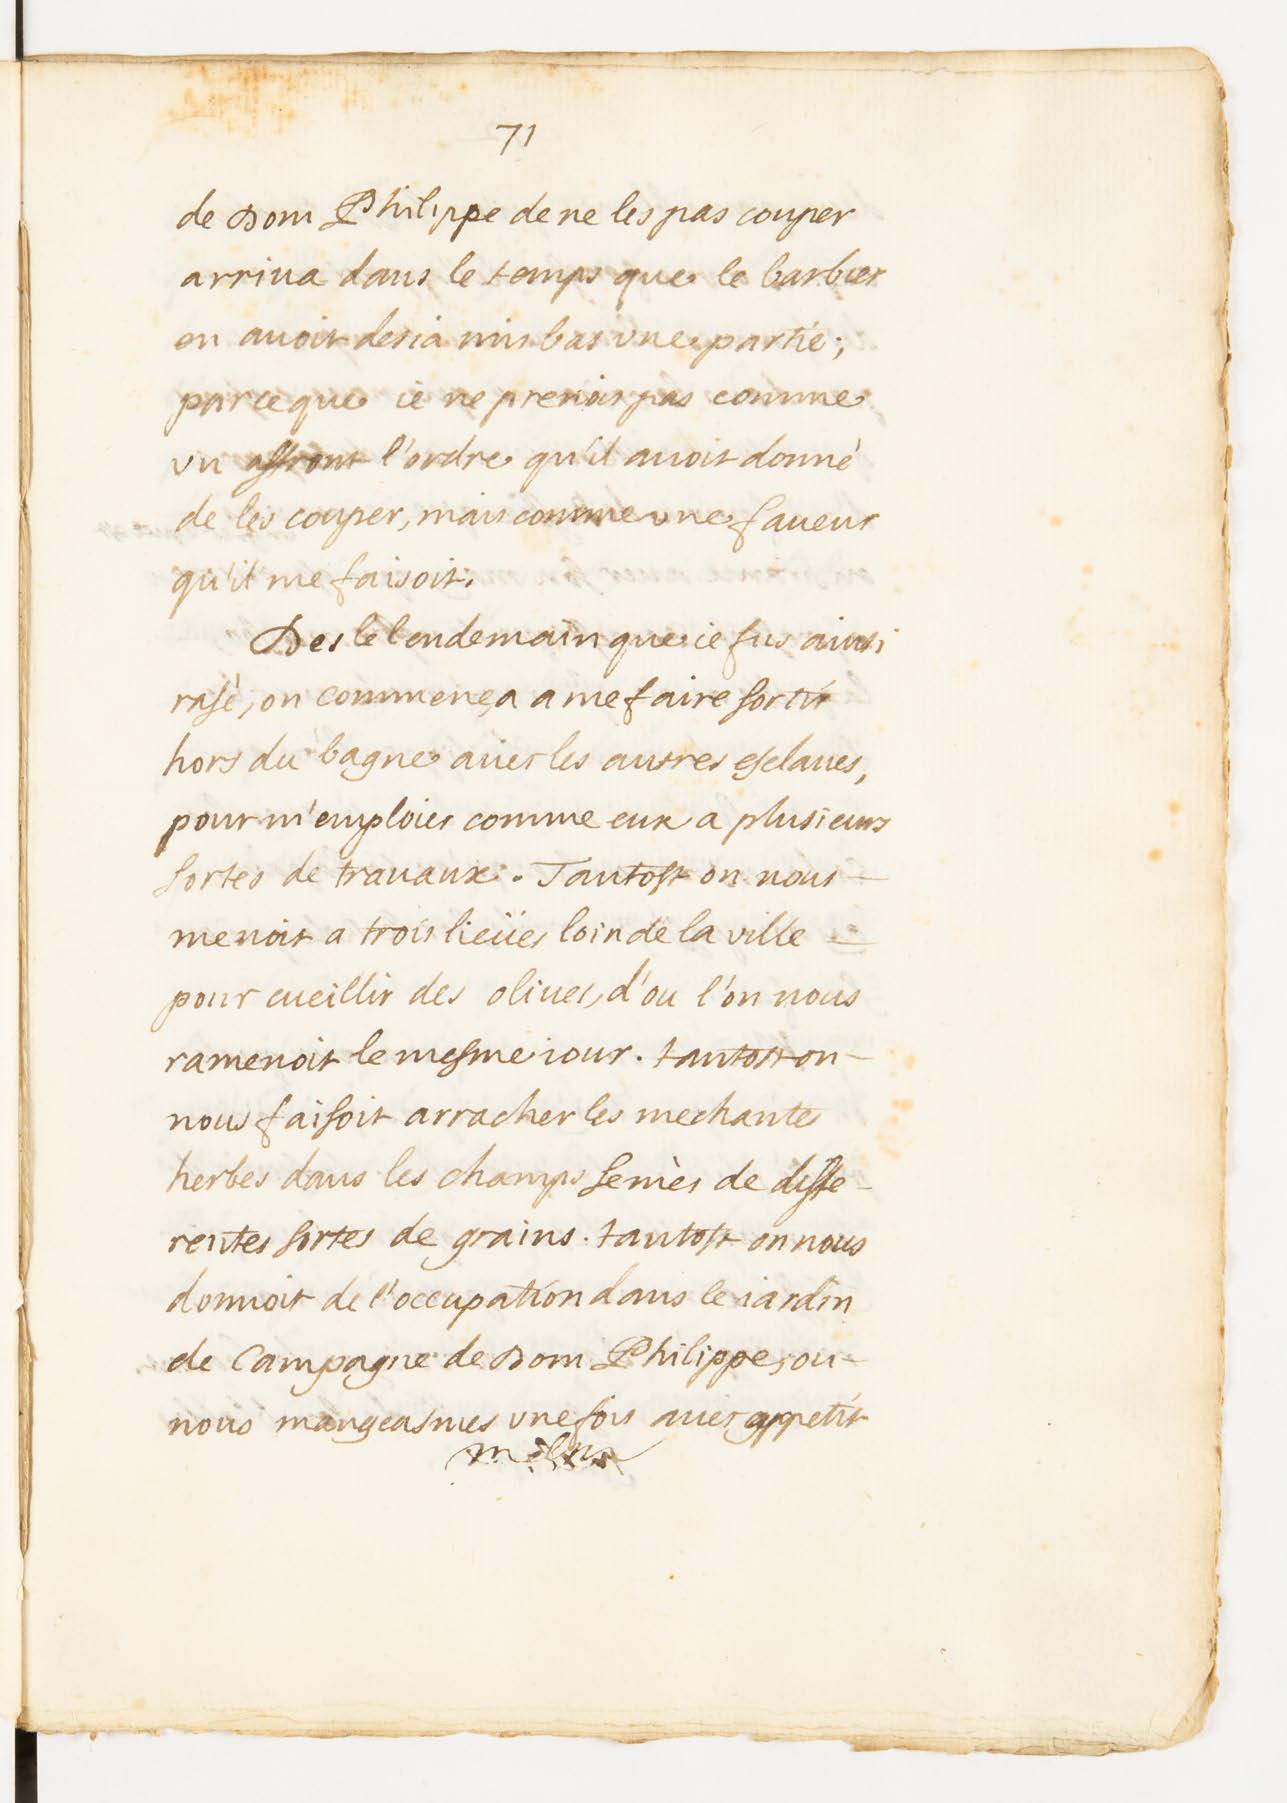 71
de Dom Philippe de ne les pas couper
arriua dans le temps que le barbier
en auoit desia mis bas vne partie;
parce que ie ne prenois pas comme
vn affront l'ordre qu'il auoit donné
de les couper, mais comme vne faueur
qu'il me faisoit.
Des le lendemain que ie fus ainsi
rasé, on commença a me faire sortir
hors du bagne auec les autres esclaues,
pour m'emploier comme eux a plusieurs
sortes de trauaux. Tantost on nous
menoit a trois lieües loin de la ville
pour cueillir des oliues, d'ou l'on nous
ramenoit le mesme iour. tantost on
nous faisoit arracher les mechantes
herbes dans les champs semés de diffe-
rentes sortes de grains. tantost on nous
donnoit de l'occupation dans le iardin
de Campagne de Dom Philippe, ou
nous mangeasmes vne fois auec appetit